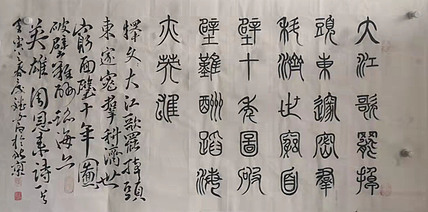 大江歌罷掉
頭東邃密群
科濟世窮面
壁十年圖破
壁難酬蹈海
亦英雄
釋文大江歌罷掉頭
東邃密群科濟世
窮面壁十年圖
破壁難酬蹈海亦
英雄周恩來詩一首